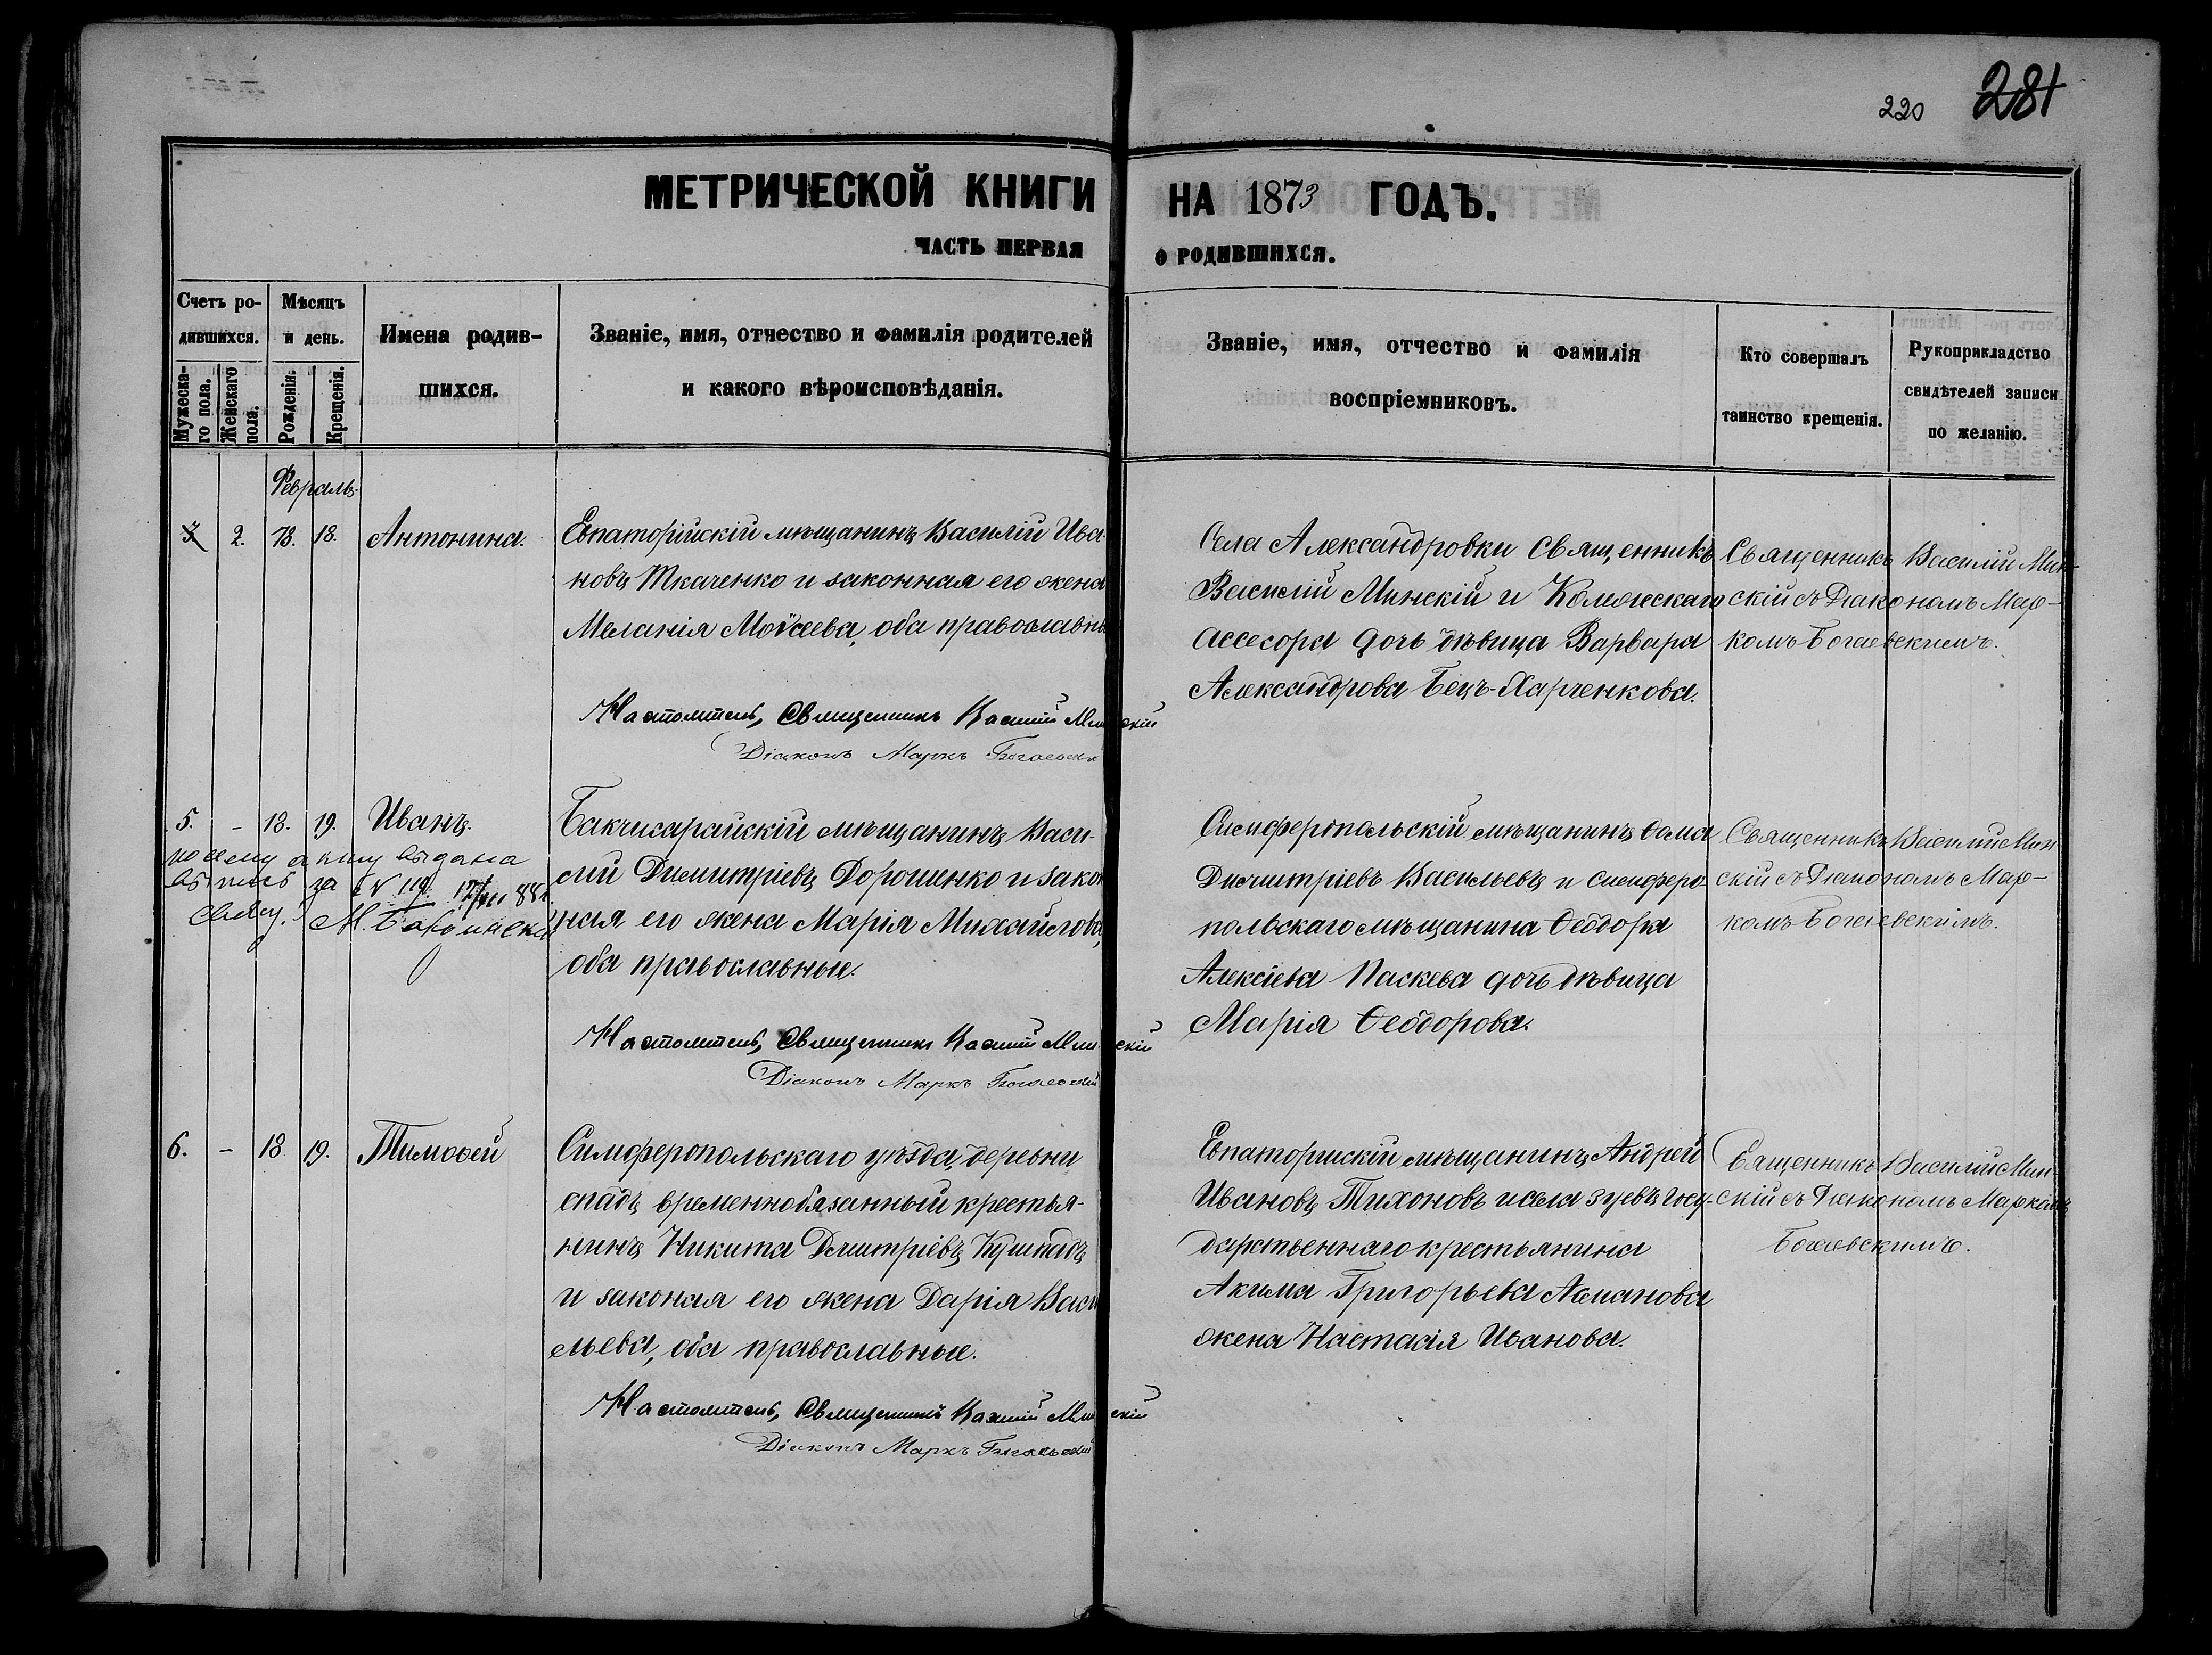 220 281
МЕТРИЧЕСКОЙ КНИГИ НА 1873 ГОДЪ.
ЧАСТЬ ПЕРВАЯ О РОДИВШИХСЯ.
Счетъ ро-
дившихся.
Мужеска-
го пола.
Женскаго
пола.
Мѣсяцъ
и день.
Рожденія.
Крещенія.
Имена родив-
шихся.
Званіе, имя, отчество и фамилія родителей
и какого вѣроисповѣданія.
Званіе, имя, отчество и фамилія
воспріемниковъ.
Кто совершалъ
таинство крещенія.
Рукоприкладство
свидѣтелей записи
по желанію.
Февраль.
2. 18. 18. Антонина.
Евпаторійскій мѣщанинъ Василій Ива-
новъ Ткаченко и законная его жена
Меланія Моѵсеева, оба православн
Настоятель, Священникъ Василій Минскій
Діаконъ Маркъ Богаевск
Села Александровки Священникъ
Василій Минскій и Колежскаго
ассесора дочь дѣвица Варвара
Александрова Бецъ-Харченкова.
Священникъ Василій Мин-
скій съ Діакономъ Мар-
комъ Богаевскимъ.
5. - 18. 19. Иванъ.
по сему акту выдана
выпись за № 119. 88 г.
Свящ. М.
Бакчисарайскій мѣщанинъ Васи-
лій Димитріевъ Дорошенко и закон
ная его жена Марія Михайлова,
оба православные.
Настоятель, Священникъ Василій Минскій
Діаконъ Маркъ Богаевскій
Симферопольскій мѣщанинъ Ѳома
Димитріевъ Васильевъ и Симферо-
польскаго мѣщанина Ѳеодора
Алексіева Паскева дочь дѣвица
Марія Ѳеодорова.
Священникъ Василій Мин
скій съ Діакономъ Мар-
комъ Богаевскимъ.
6. - 18 19. Тимоѳей
Симферопольскаго уѣзда, деревни
спадъ временнобязанный крестья-
нинъ Никита Димитріевъ
и законая его жена Дарія Васи
льева, оба православные.
Настоятель, Священникъ Василій Минскій
Діаконъ Маркъ Богаевскій
Евпаторискій мѣщанинъ Андрей
Ивановъ Тихоновъ и села Зуевъ госу-
дарственнаго крестьянина
Акима Григорьева Асманова
жена Настасія Иванова.
Священникъ Василій Мин
скій съ Діакономъ Маркомъ
Богаевскимъ.